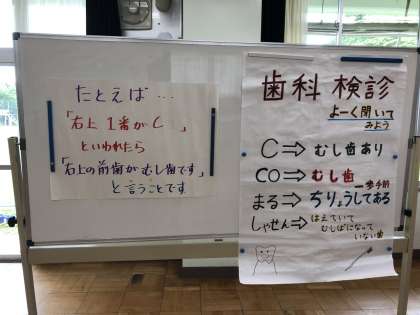 たとえば…
「右上 1番がC 」
といわれたら
「右上の前歯がむし歯です」
と言うことです
歯科検診
よーく聞いて
みよう
C⇒むし歯あり
CO⇒むし歯
一歩手前
まる⇒ちりょうしてある
しゃせん⇒はえていて
むしばになって
いない歯